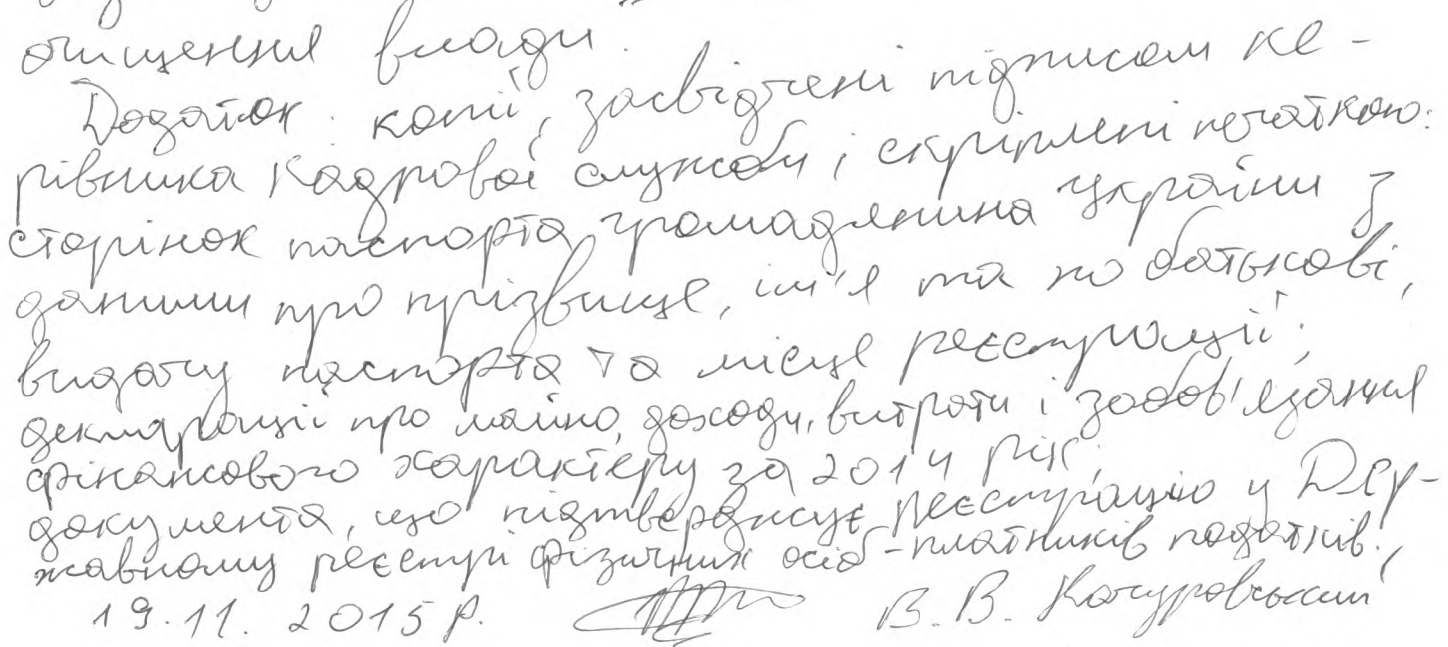 очищення влади.
Додаток: копії, засвідчені підписом ке-
рівника кадрової служби і скріплені печаткою:
сторінок паспорта громадянина України з
даними про прізвище, ім'я та по батькові,
видачу паспорта та місце реєстрації;
декларації про майно, доходи, витрати і зобов'язання
фінансового характеру за 2014 рік;
документа, що підтверджує реєстрацію у Дер-
жавному реєстрі фізичних осіб-платників податків.
19.11.2015 р. В.В. Качуровський